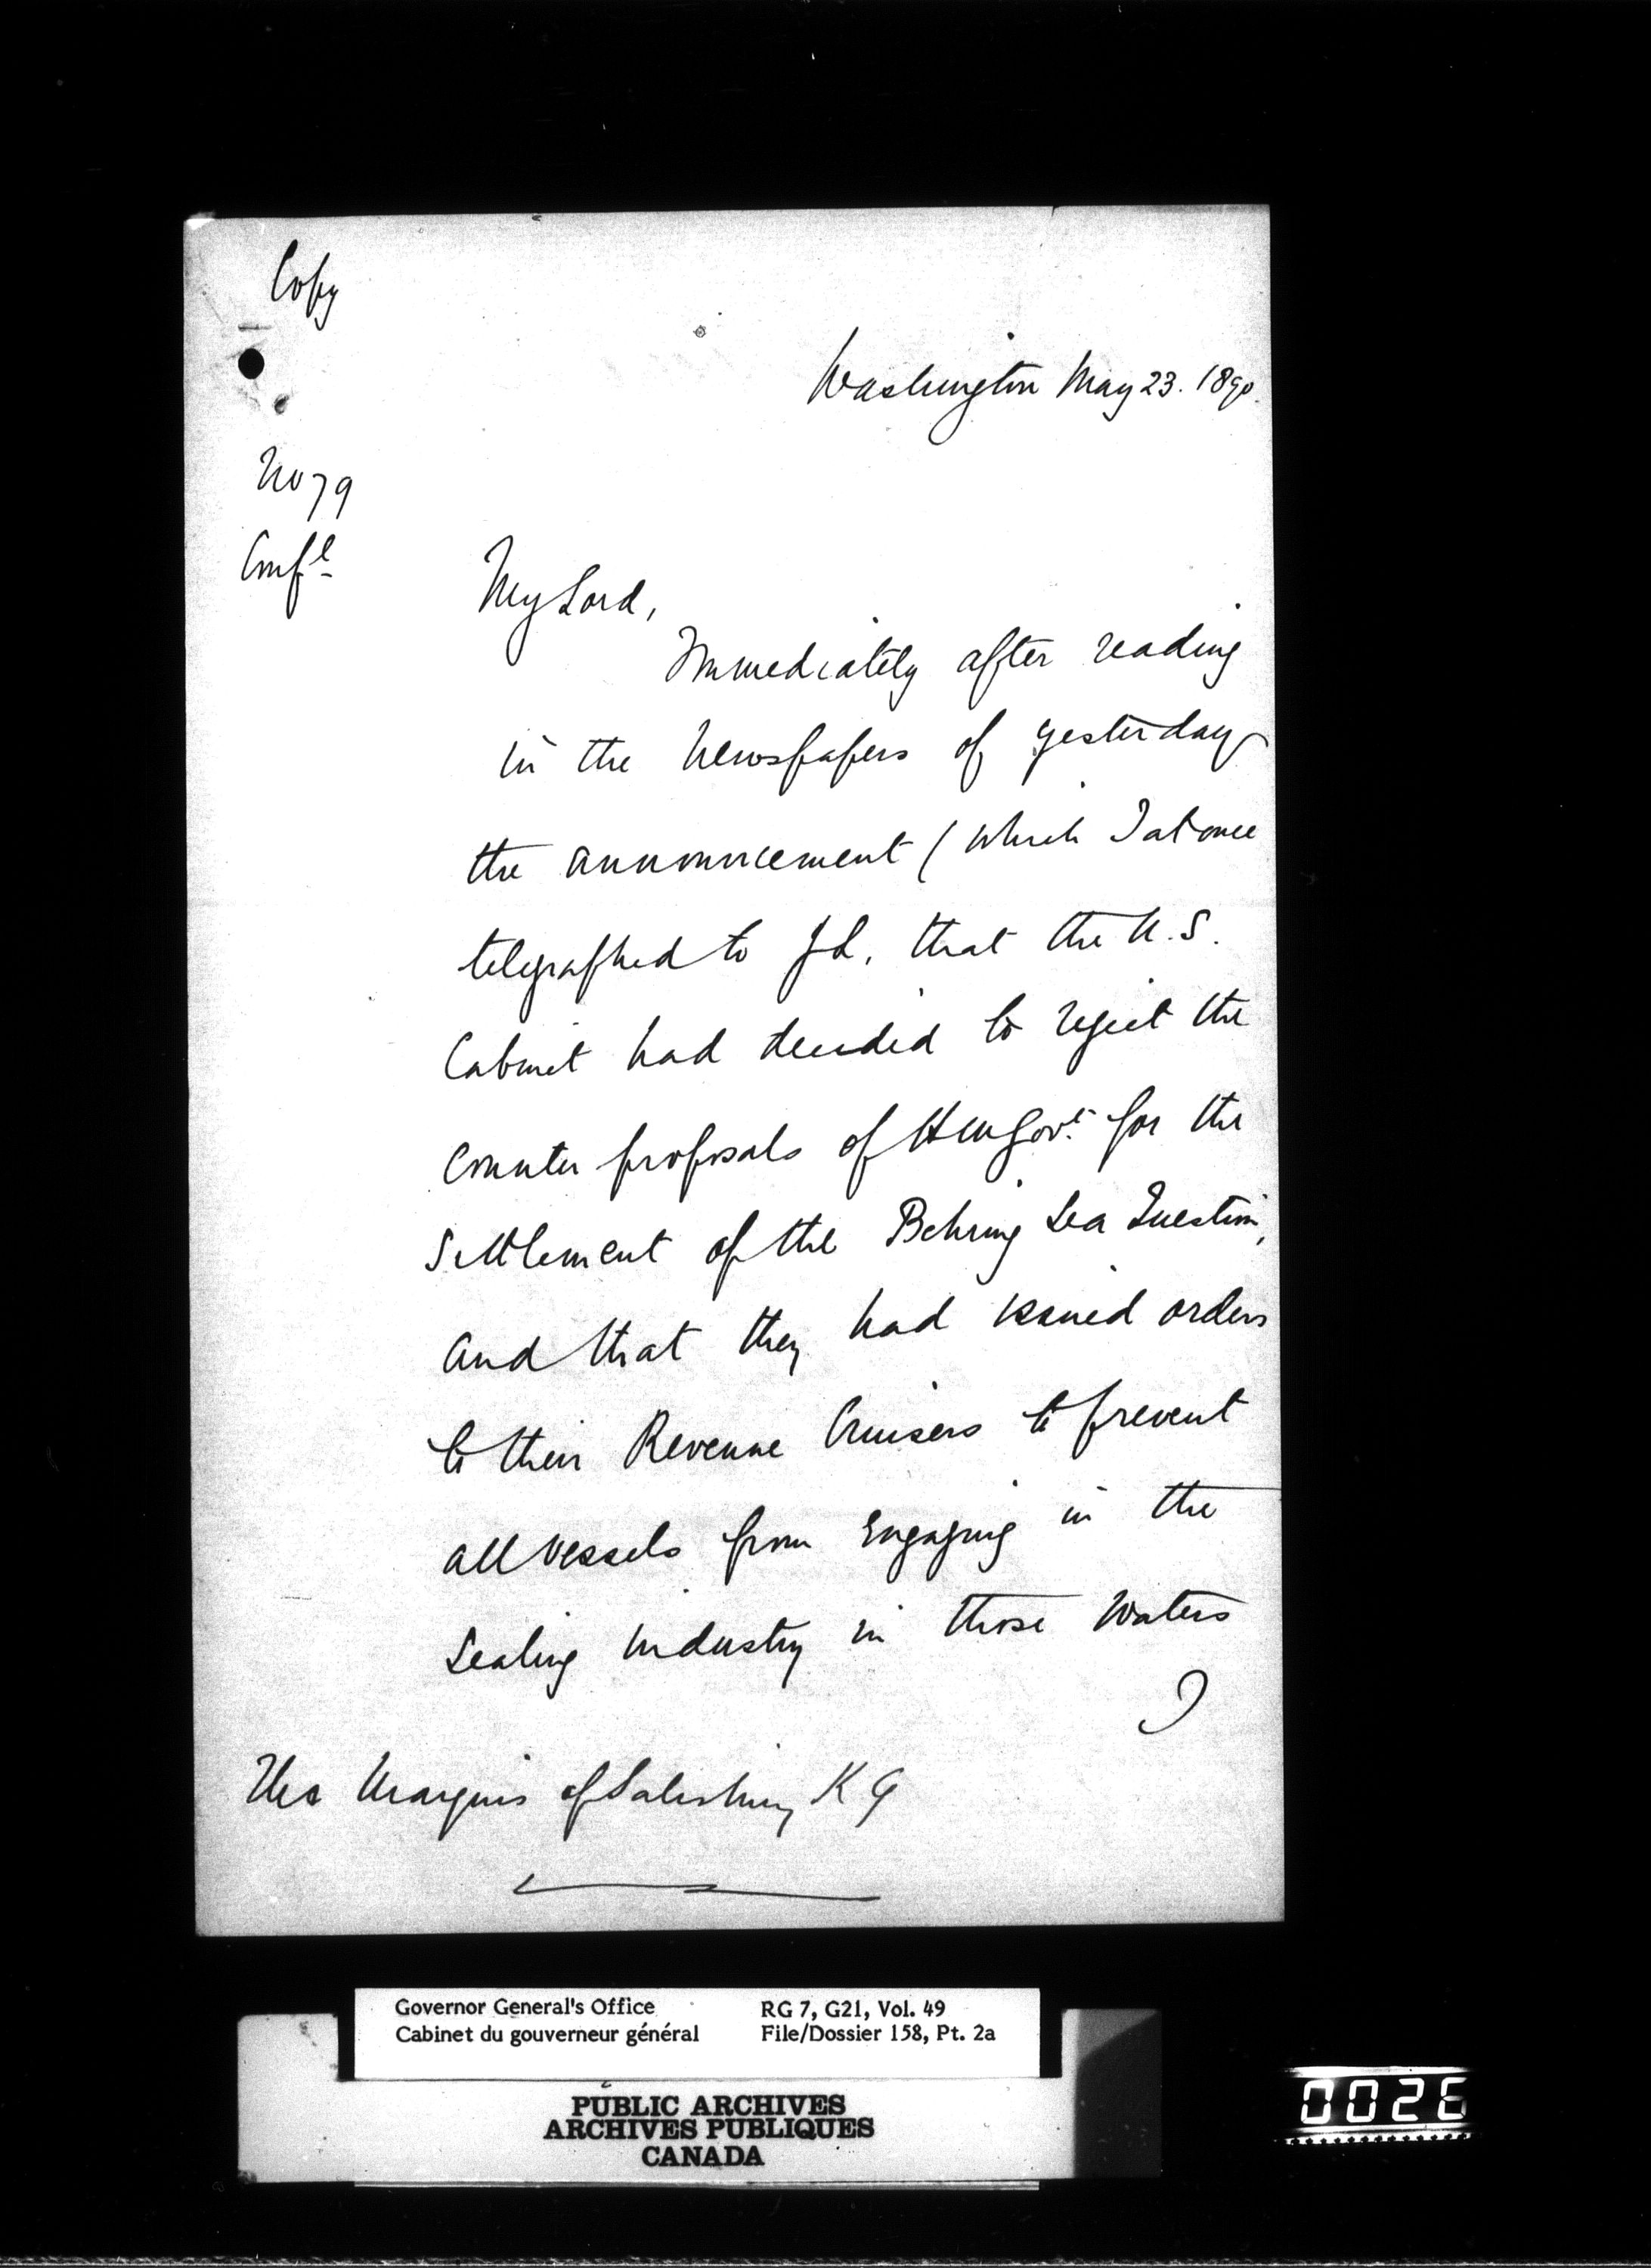 Copy
Washington May 23. 1890.
No 79
Confl
My Lord,
Immediately after reading
in the Newspapers of yesterday
the announcement (which I at once
telegraphed to YL. that the U.S.
Cabinet had decided to reject the
Counter proposals of HM Govt. for the
Settlement of the Behring Sea Question,
and that they had issued orders
to their Revenue Cruisers to prevent
all vessels from engaging in the
Sealing industry in those Waters
I
The Marquis of Salisbury K G
Governor General's Office
Cabinet du gouverneur général
RG 7, G21, Vol. 49
File/Dossier 158, Pt. 2a
PUBLIC ARCHIVES
ARCHIVES PUBLIQUES
CANADA